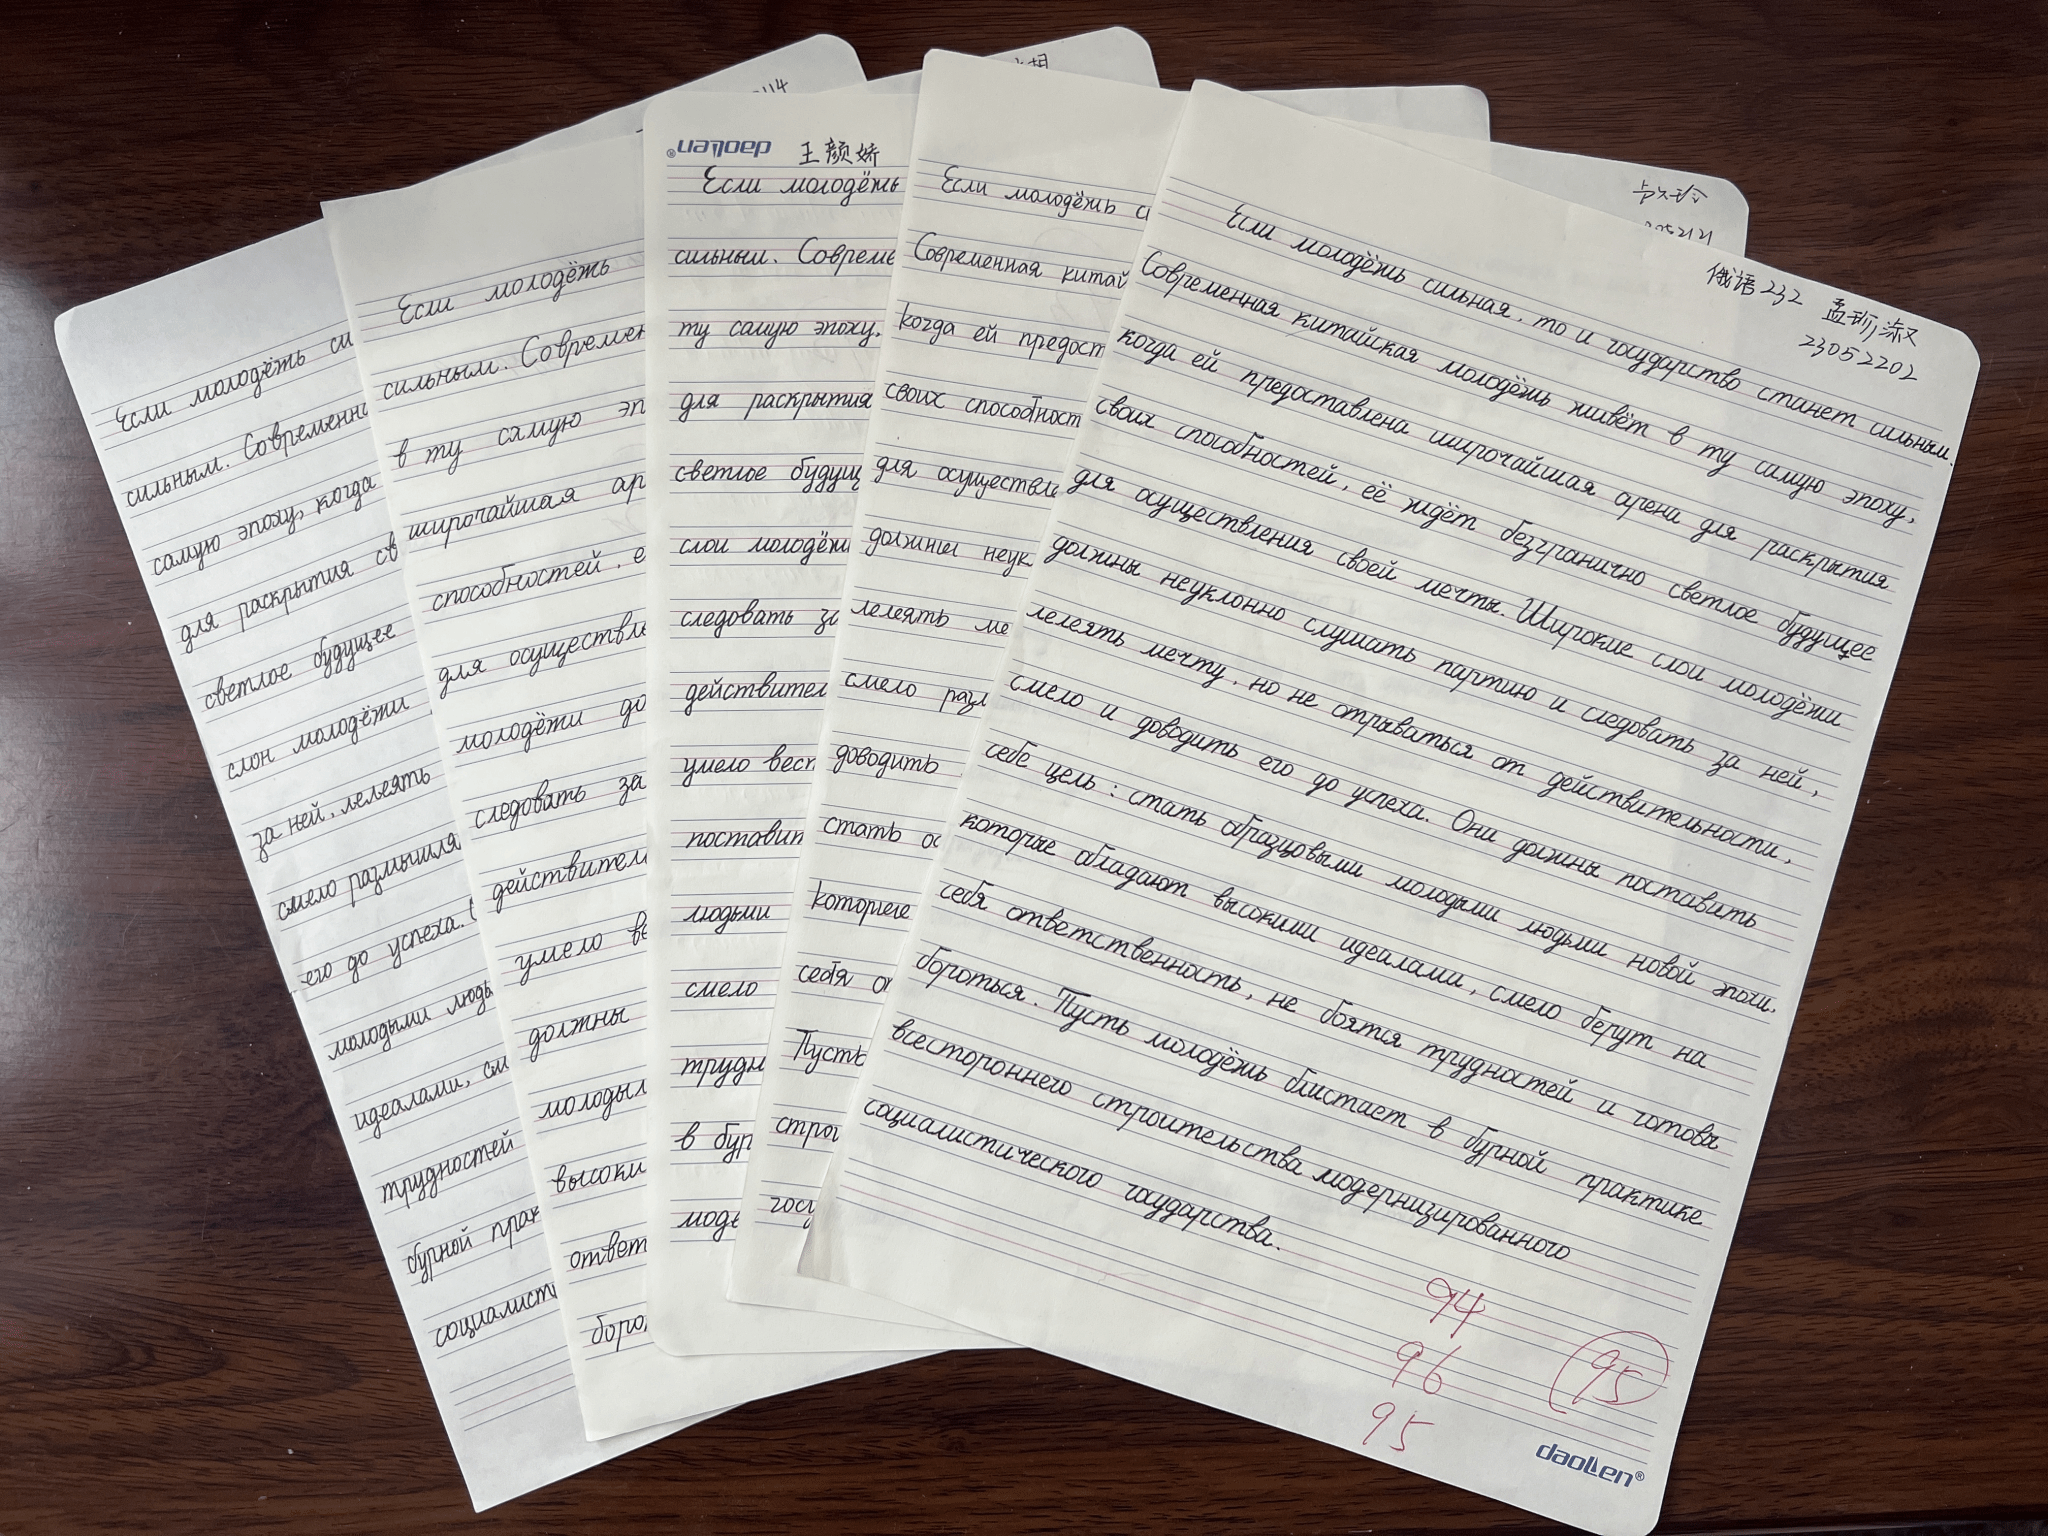 Если молодёжь си
сильным. Современн
самую эпоху, когда
для раскрытия св
светлое будущее
слои молодёжи
за ней, лелеять
смело размышля
его до успеха.
молодыми людь
идеалами, см
трудностей
бурной прак
социалисти
Если молодёжь
сильным. Современ
в ту самую эп
широчайшая ар
способностей, е
для осуществле
молодёжи до
следовать за
действител
умело ве
должны
молоды
высоки
ответ
боро
daoLen®
王颜娇
Если молодёжь
сильным. Совреме
ту самую эпоху.
для раскрытия
светлое будущ
слои молодёж
следовать за
действител
умело вест
поставит
людьми
смело
трудн
в бур
моде
Если молодёжь с
Современная китай
когда ей предост
своих способност
для осуществле
должны неук
лелеять ме
смело раз
доводить
стать об
которые
себя от
Пусть
строи
госу
2052121
俄语232 孟珩淑
23052202
Если молодёжь сильная, то и государство станет сильным.
Современная китайская молодёжь живёт в ту самую эпоху,
когда ей предоставлена широчайшая арена для раскрытия
своих способностей, её ждёт безгранично светлое будущее
для осуществления своей мечты. Широкие слои молодёжи
должны неуклонно слушать партию и следовать за ней,
лелеять мечту, но не отрываться от действительности,
смело и доводить его до успеха. Они должны поставить
себе цель: стать образцовыми молодыми людьми новой эпохи,
которые обладают высокими идеалами, смело берут на
себя ответственность, не боятся трудностей и готовы
бороться. Пусть молодёжь блистает в бурной практике
всестороннего строительства модернизированного
социалистического государства.
94
96
95
95
daoLen®